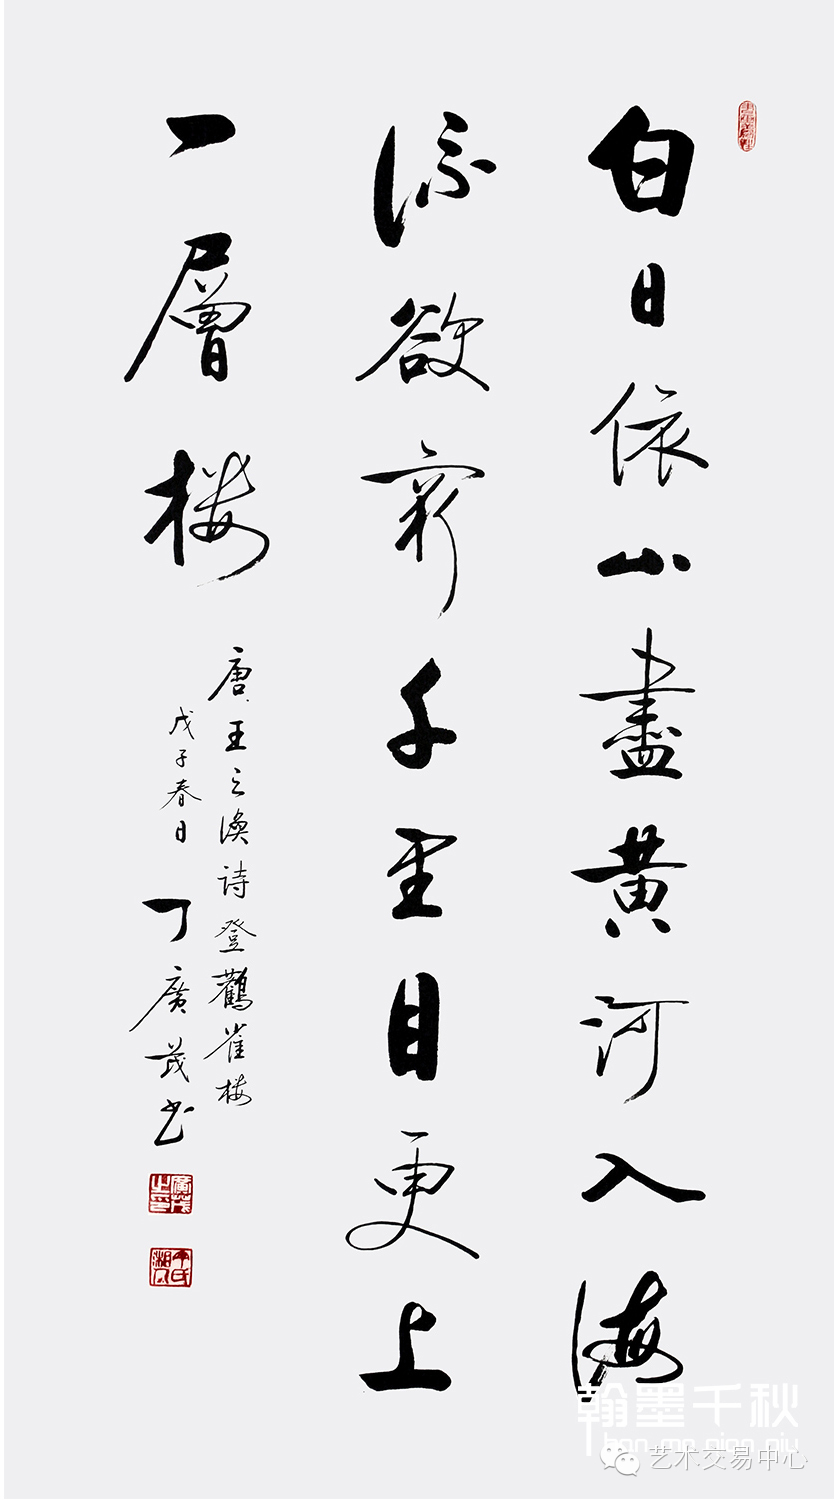 白日依山盡黄河入海
流欲窮千里目更上
一層樓
唐王之渙詩登鸛雀樓
戊子春日 丁廣茂书
廣茂之印
翰墨千秋
han mo qian qiu
艺术交易中心